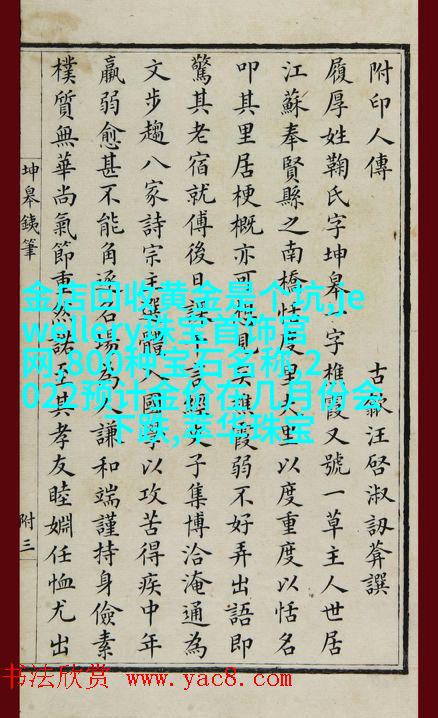 附印人傳
古歙汪啓淑訒葊譔
履厚姓鞠氏字坤皋一字樵霞又號一草主人世居
江蘇奉賢縣之南橋恬度里夫里以度重度以恬名
叩其里居梗概亦可想見矣樵霞弱不好弄出語即
驚其老宿就傅後日課千言經史子集博洽淹通為
文步趨八家詩宗主選體入國學以攻苦得疾中年
羸弱愈甚不能角逐名場為人謙和端謹持身儉素
樸質無華尚氣節重然諾至其孝友睦婣任恤尤出
坤皋鐵筆
附三
金店回收黄金是个坑,je
wellery珠宝首饰官
网,800种宝石名称,2
022预计金价在几月份会
下跌,萃华珠宝
书法欣赏 www.yac8.com